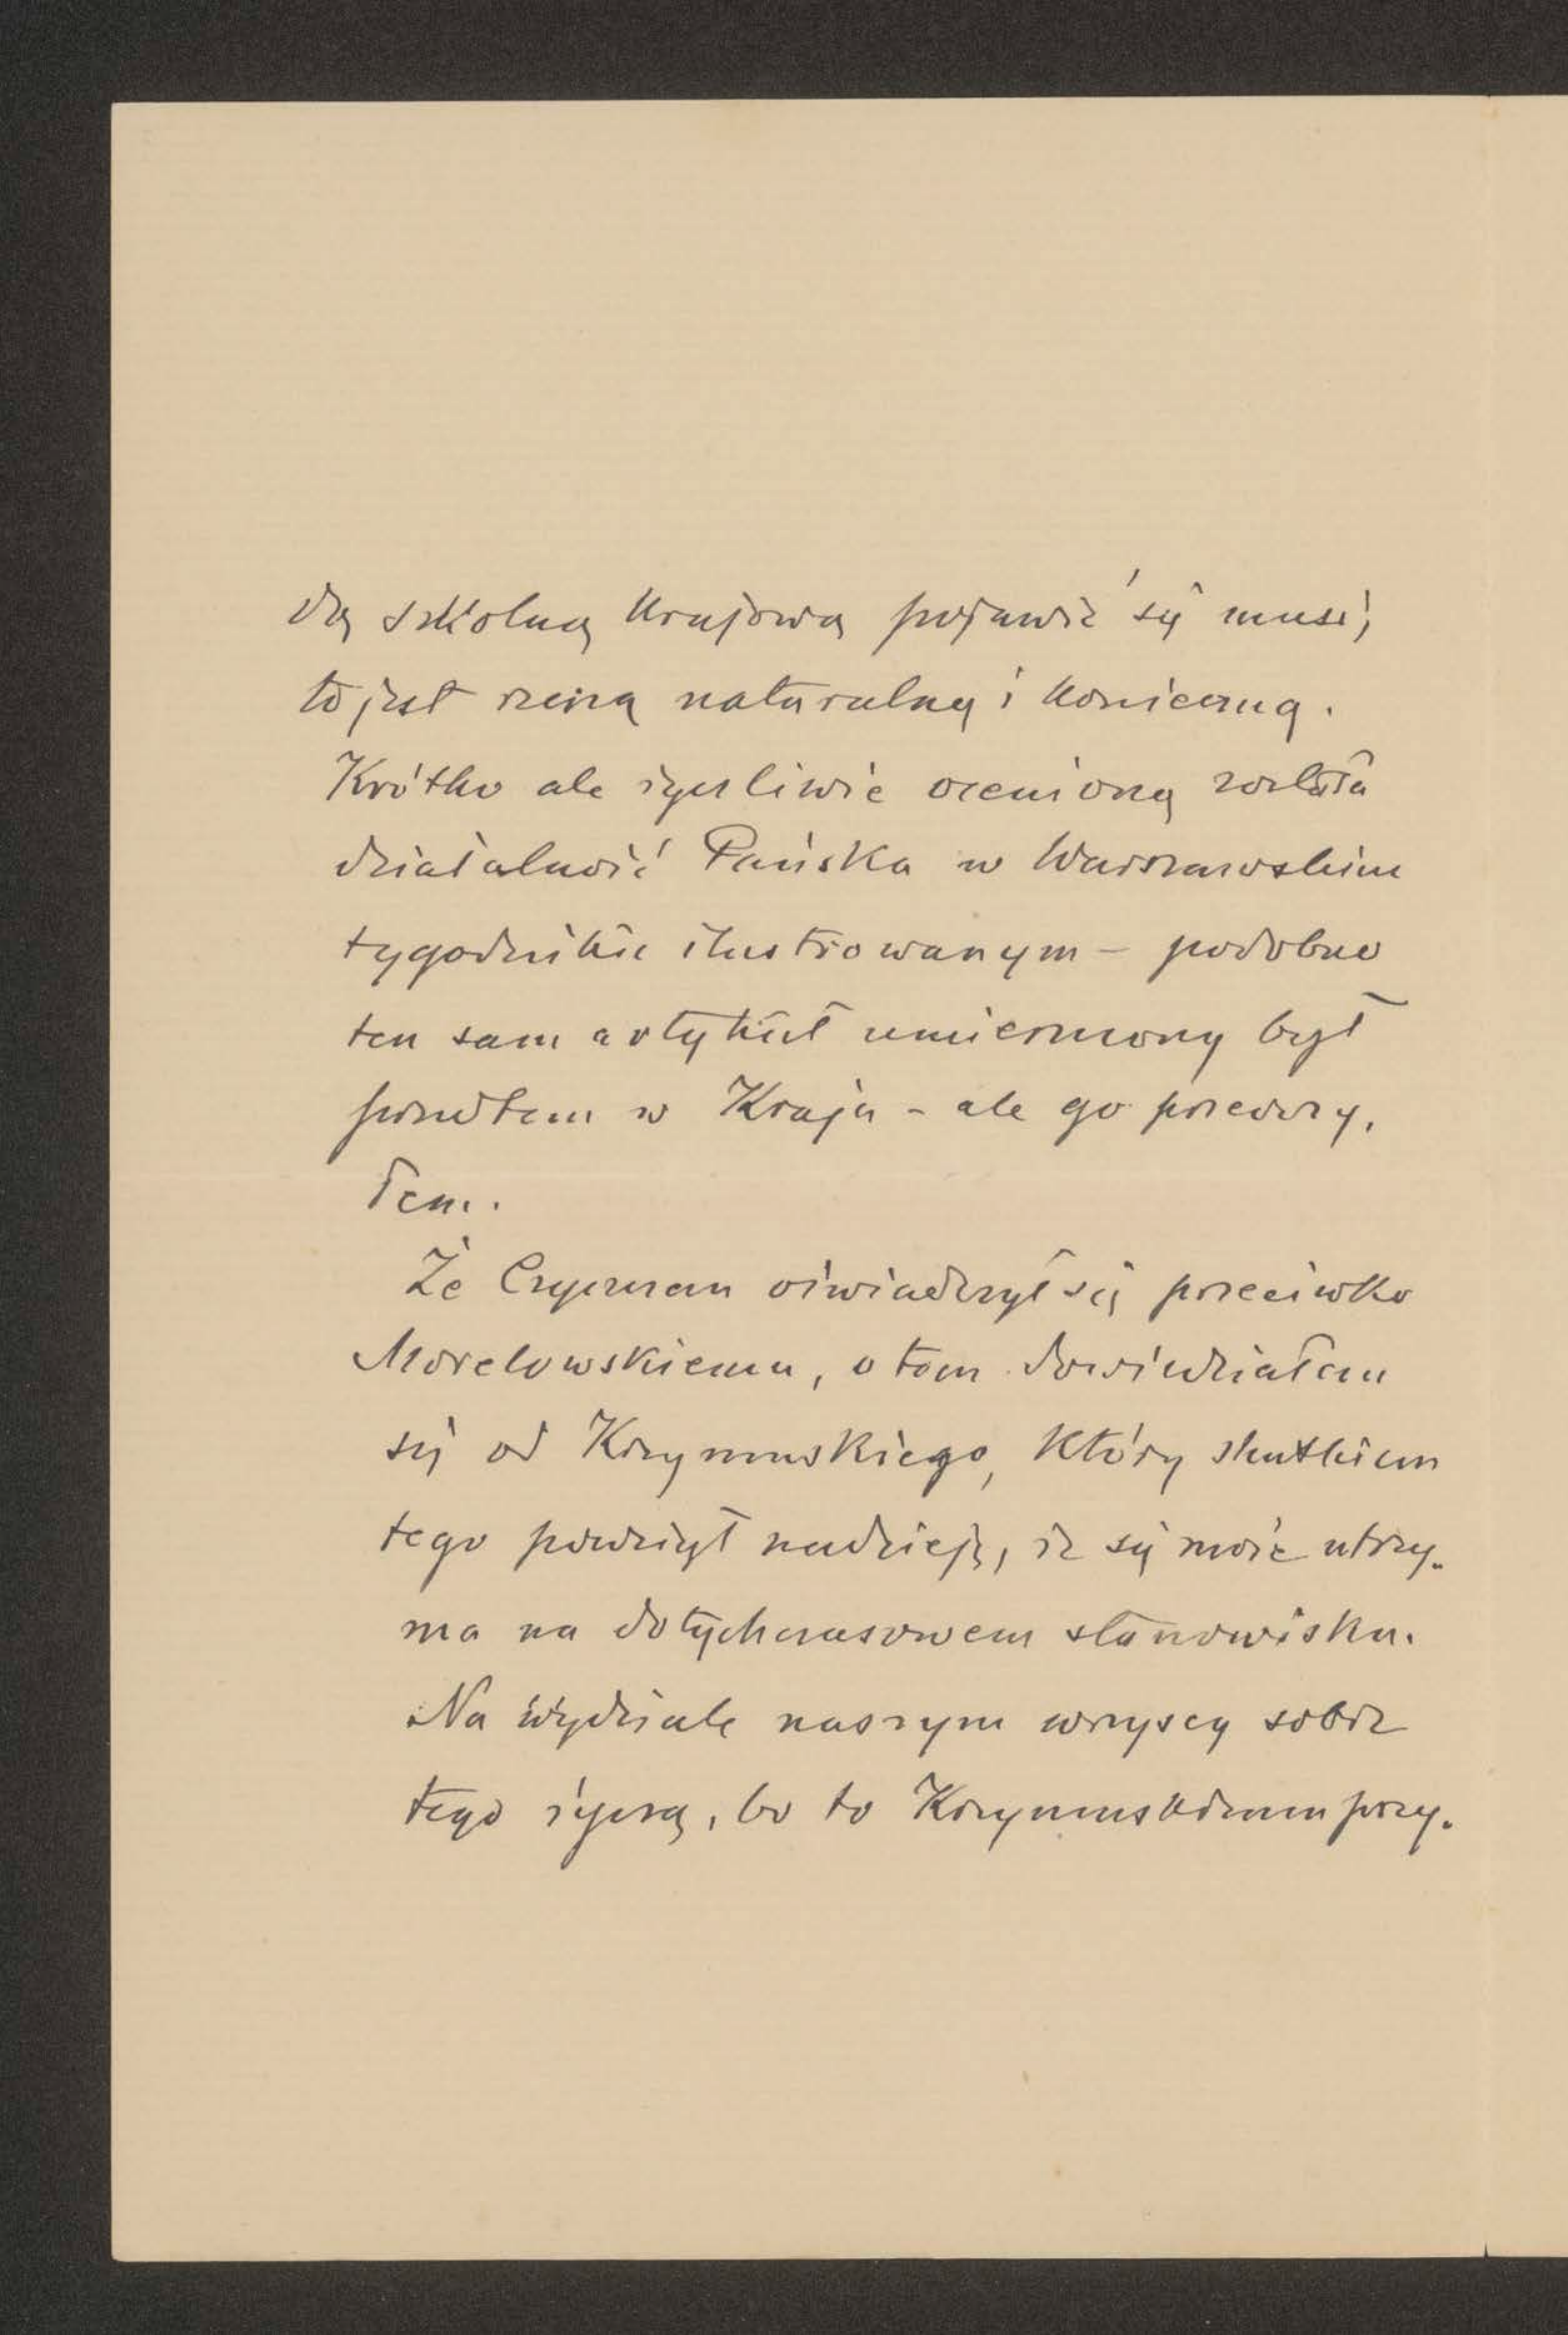 dę szkolną krajową pojawić się musi;
to jest rzeczą naturalną i konieczną.
Krótko ale życzliwie ocenioną została
działalność Pańska w Warszawskim
tygodniku ilustrowanym – podobno
ten sam artykuł umieszczony był
przedtem w Kraju – ale go przeoczy-
łem.
Że Czyszczan oświadczył się przeciwko
Morelowskiemu, o tem dowiedziałem
się od Krzymuskiego, który skutkiem
tego powziął nadzieję, iż się może utrzy-
ma na dotychczasowem stanowisku.
Na wydziale naszym wszyscy sobie
tego życzą, bo to Krzymuskiemu przy-